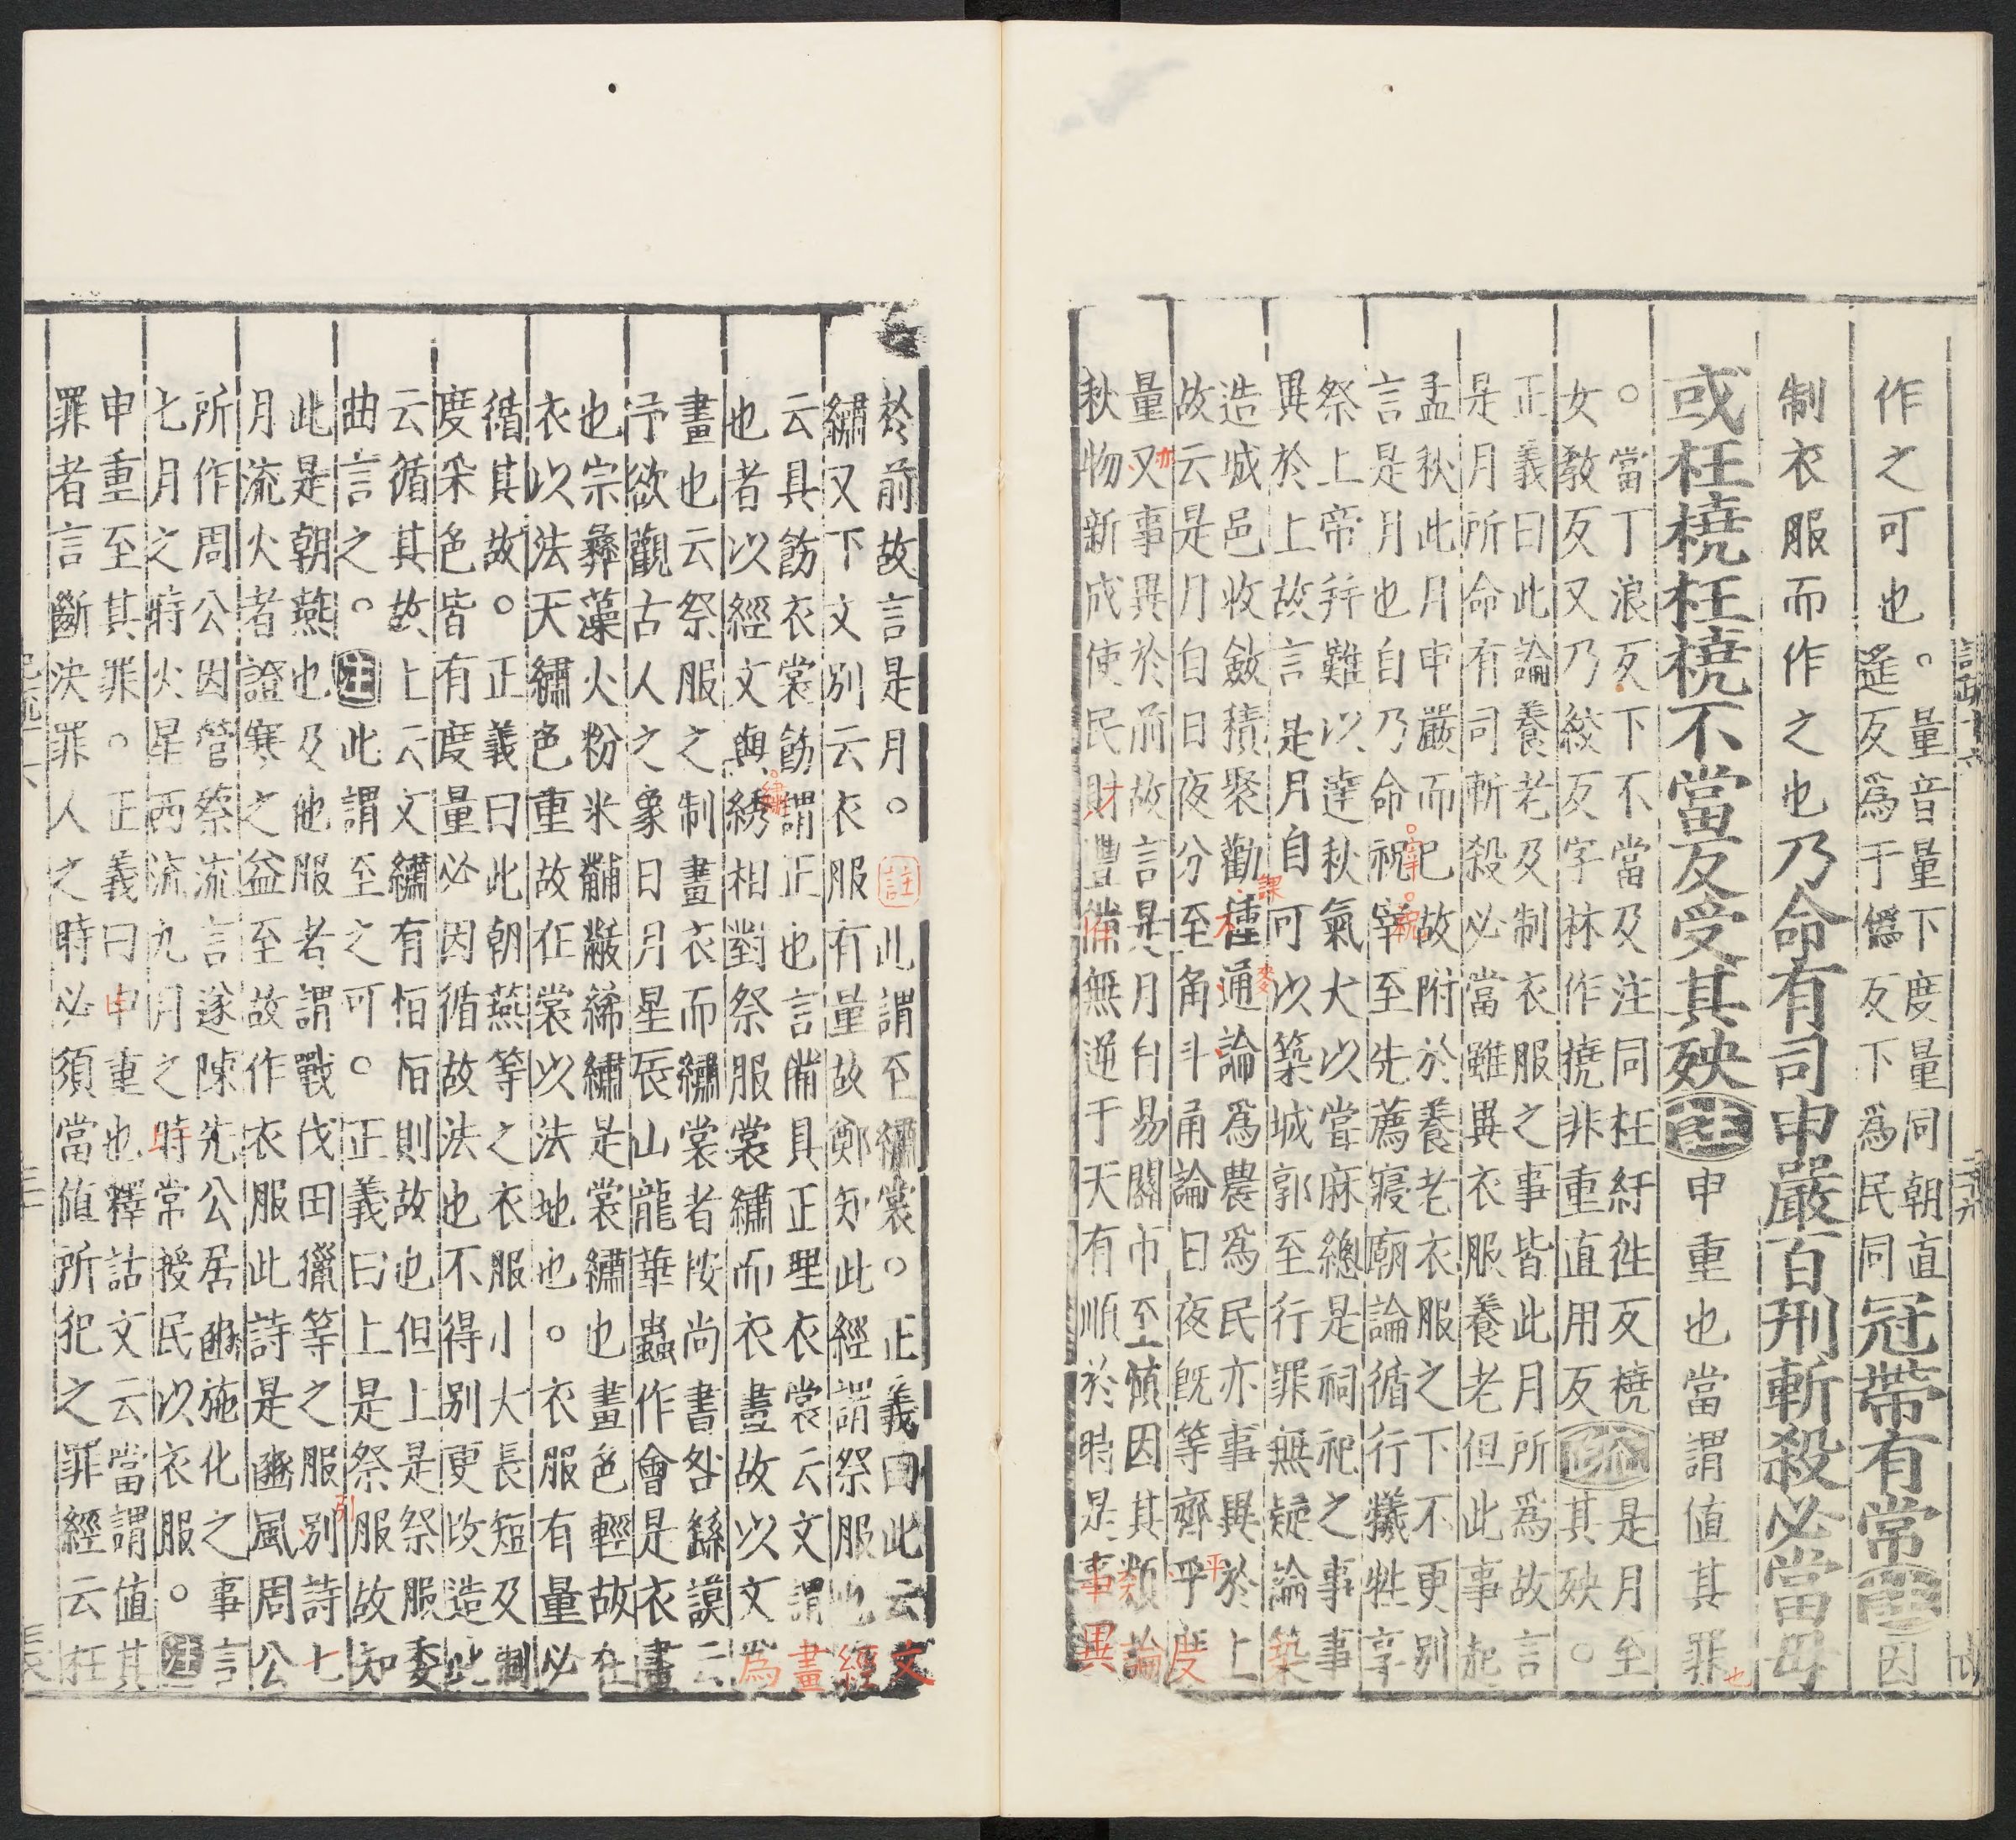 作之可也。量音量下度量同朝直遥反為于僞反下為民同冠帶有常注因
制衣服而作之也乃命有司申嚴百刑斬殺必當毋
或枉橈枉橈不當反受其殃注申重也當謂值其罪也
。當丁浪反下不當及注同枉紆徃反橈
女教反又乃絞反字林作撓非重直用反疏是月至
其殃。
正義曰此論養老及制衣服之事皆此月所爲故言
是月所命有司斬殺必當雖異衣服養老但此事起
孟秋此月申嚴而已故附於養老衣服之下不更别
言是月也自乃命祝宰至先薦寢廟論循行犧牲享
祭上帝并難以達秋氣犬以嘗麻總是祠祀之事事
異於上故言是月自可以築城郭至行罪無疑論築
造城邑收斂積聚勸種通論爲農爲民亦事異於上
故云是月自日夜分至角斗甬論日夜既等齊平度
量又事異於前故言是月自易關市至慎因其類論
秋物新成使民財豐備無逆于天有順於時是事異
於前故言是月。註此謂至繡裳。正義曰此云文
繡又下文别云衣服有量故鄭知此經謂祭服也經
云具飭衣裳飭謂正也言備具正理衣裳云文謂畫
也者以經文與綉相對祭服裳繡而衣畫故以文為
畫也云祭服之制畫衣而繡裳者按尚書咎繇謨云
予欲觀古人之象日月星辰山龍華蟲作會是衣畫
也宗彝藻火粉米黼黻絺繡是裳繡也畫色輕故在
衣以法天繡色重故在裳以法地也。衣服有量必
循其故。正義曰此朝燕等之衣服小大長短及制
度采色皆有度量必因循故法也不得别更改造此
云循其故上云文繡有恒恒則故也但上是祭服委
曲言之。注此謂至之可。正義曰上是祭服故知
此是朝燕也及他服者謂戰伐田獵等之服别詩七
月流火者證寒之益至故作衣服此詩是豳風周公
所作周公因管蔡流言遂陳先公居豳施化之事言
七月之時火星西流九月之時常授民以衣服。注
申重至其罪。正義曰申重也釋詁文云當謂值其
罪者言斷決罪人之時必須當值所犯之罪經云枉